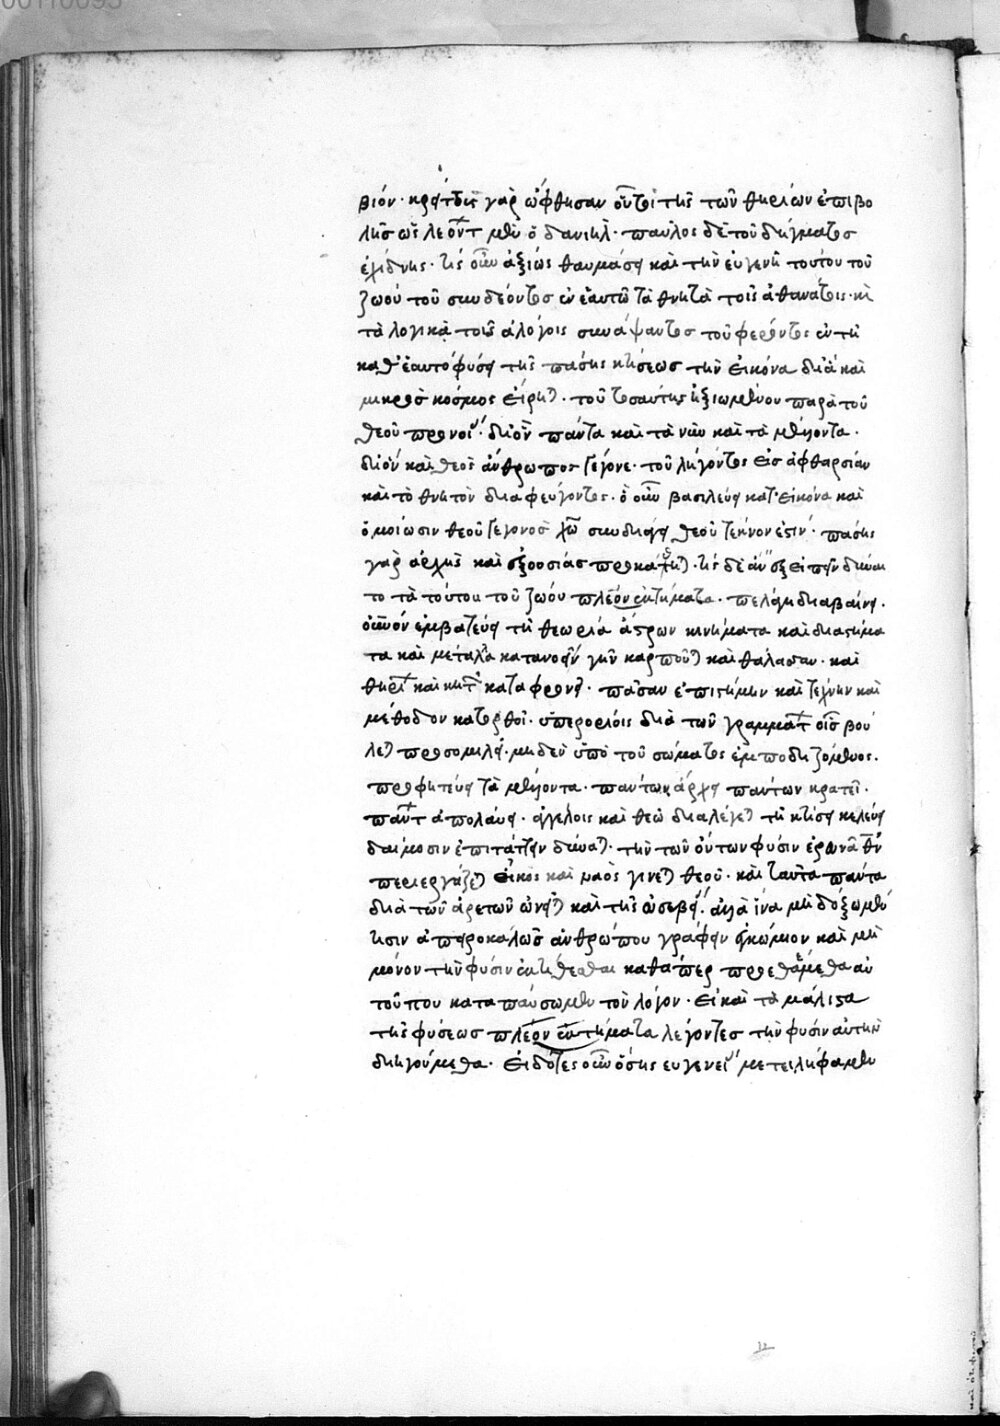 βιόν· κρείττους γὰρ ὤφθησαν οὗτοι τῆς τῶν θηρίων ἐπιβο
λῆς ὡς λεόντ μὲν ὁ δανιήλ· παῦλος δὲ τοῦ δήγματος
ἐχίδνης· τίς οὖν ἀξίως θαυμάσει καὶ τὴν εὐγενῆ τούτου τοῦ
ζώου τοῦ συνδέοντος ἐν ἑαυτῶ τὰ θνητὰ τοῖς ἀθανάτοις· κὶ
τὰ λογικὰ τοῖς ἀλόγοις συνάψαντος τοῦ φέροντος ἐν τῆ
καθ' ἑαυτὸ φύσει τῆς πάσης κτίσεως τὴν εἰκόνα διὰ καὶ
μικρὸς κόσμος εἴρηται. τοῦ τοσαύτης ἠξιωμένου παρὰ τοῦ
θεοῦ προνοί· δι' ὃν πάντα καὶ τὰ νῦν καὶ τὰ μέλλοντα·
δι' ὃν καὶ θεὸς ἄνθρωπος γέγονε· τοῦ λήγοντος εἰς ἀφθαρσίαν
καὶ τὸ θνητὸν διαφεύγοντος· ὁ οὖν βασιλεύς κατ' εἰκόνα καὶ
ὁμοίωσιν θεοῦ γεγονὸς χῶ συνδιάγει θεοῦ τέκνον ἐστίν· πάσης
γὰρ ἀρχῆς καὶ ἐξουσίας προκάθηται· τίς δὲ ἂν ἐξειπεῖν δύναι
το τὰ τούτου τοῦ ζώου πλεονεκτήματα· πελάγη διαβαίνει·
οὐνὸν ἐμβατεύει τῆ θεωρία ἄστρων κινήματα καὶ διαστήμα
τα καὶ μέταλλα κατανοεῖν γῆν καρποῦται καὶ θάλασσαν· καὶ
θηρί καὶ κητ καταφρονεῖ· πᾶσαν ἐπιστήμην καὶ τέχνην καὶ
μέθοδον κατορθοῖ· ὑπερορίοις διὰ τῶν γραμμάτ οἷς βού
λεται προσομιλεῖ· μηδὲν ὑπὸ τοῦ σώματος ἐμποδιζόμενος·
προφητεύει τὰ μέλλοντα· πάντων ἄρχει πάντων κρατεῖ·
πάντ ἀπολαύει· ἀγγέλοις καὶ θεῶ διαλέγεται τῆ κτίσει κελεύει
δαίμοσιν ἐπιτάττειν δύναται· τὴν τῶν ὄντων φύσιν ἐρευνᾶ θν
περιεργάζεται οἶκος καὶ ναὸς γίνεται θεοῦ· καὶ ταῦτα πάντα
διὰ τῶν ἀρετῶν ὠνεῖται καὶ τῆς εὐσεβεί· ἀλλὰ ἵνα μὴ δόξωμέν
τισιν ἀπειροκάλως ἀνθρώπου γράφειν ἐγκώμιον καὶ μὴ
μόνον τὴν φύσιν ἐκτίθεσθαι καθάπερ προεθέμεθα αὐ
τοῦ που καταπαύσωμεν τὸν λόγον· εἰ καὶ τὰ μάλιστα
τῆς φύσεως πλεονεκτήματα λέγοντες τὴν φύσιν αὐτὴν
διηγούμεθα· εἰδότες οὖν ὅσης εὐγενεί μετειλήφαμεν